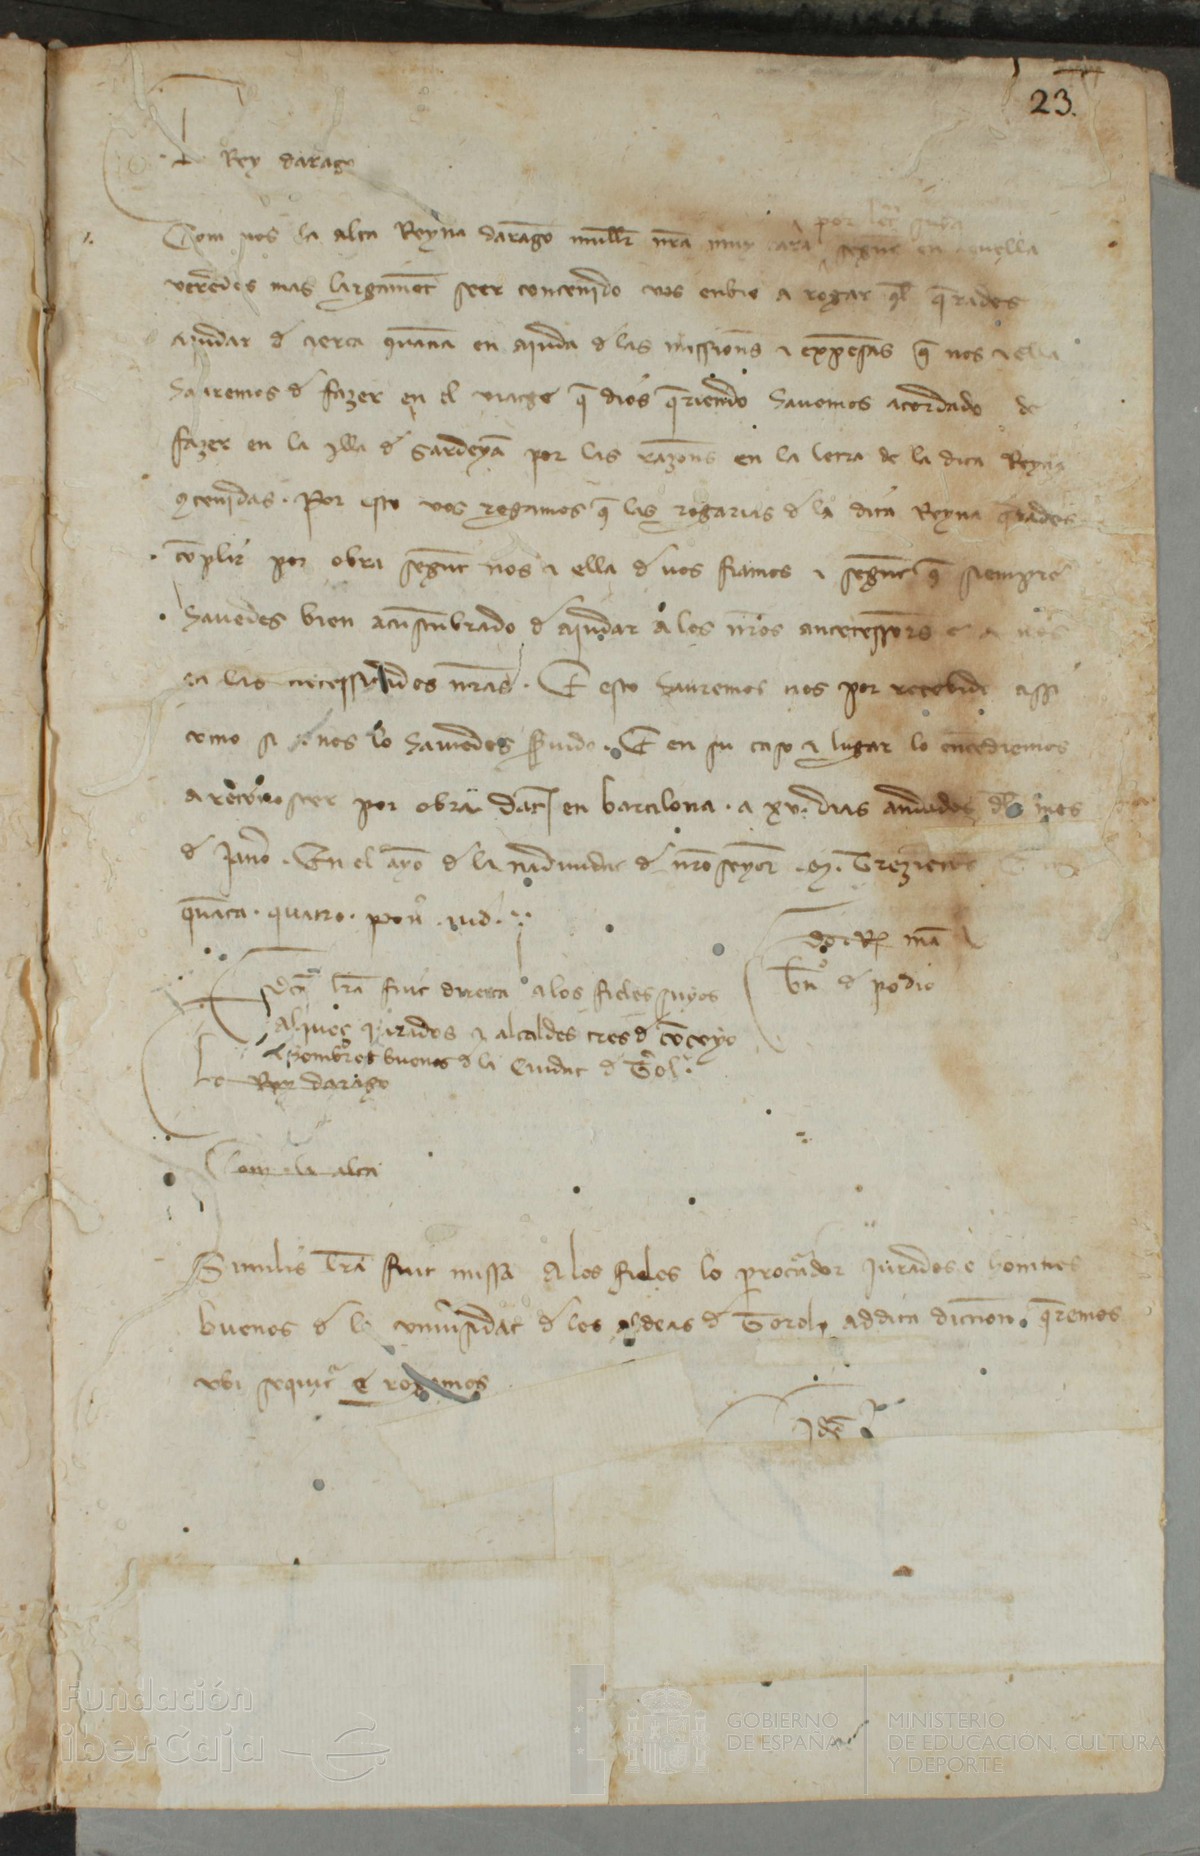 23.
Lo Rey darago
Com nos la alta Reyna darago mull'r nr̃a muy cara por lr̃a suya segunt en aquella
veredes mas largament seer contenido vos enbie a rogar q̃l q̃rades
ajudar d' cierta quantia en ajuda d' las missions & expensas q̃ nos & ella
hauremos d' fazer en el viatge q̃ dios q̃riendo hauemos acordado de
fazer en la illa d' Sardeya por las razons en la letra de la dita Reyna
9tenidas. Por esto vos rogamos q̃ las rogarias d' la dita Reyna q̃rades
cõplir por obra segunt nos & ella d' vos fiamos & segunt q̃ siempre
hauedes bien acustũbrado d' ajudar a los nr̃os antecessors e a nos
en las necessidades nr̃as. E esto hauremos nos por recebido assi
como si a nos lo hauiedes s̃uido. E en su caso & lugar lo entẽdremos
a reconoscer por obra dat' en barcelona. a xv. dias andados dl' mes
d' Janero. En el anyo d' la natiuidat d' nr̃o senyor. M. Trezientos
quãta. quatro. pon'. vid.
d. R. mã
bñ d' podio
Dca lr̃a fuit directa a los fieles suyos
al jueç jurados & alcaldes tres d' cõceyo
& hombres buenos d' la Ciudat d' T'ol'.
Lo Rey darago
Com la alta
Similis lr̃a fuit missa a los fieles lo procurador jurados e homnes
buenos d' la vniũsidat d' los aldeas d' Terol, addita diccion. q̃remos
vbi sequit' e rogamos
Idẽ
Fundación
iberCaja
GOBIERNO
DE ESPAÑA
MINISTERIO
DE EDUCACIÓN, CULTURA
Y DEPORTE